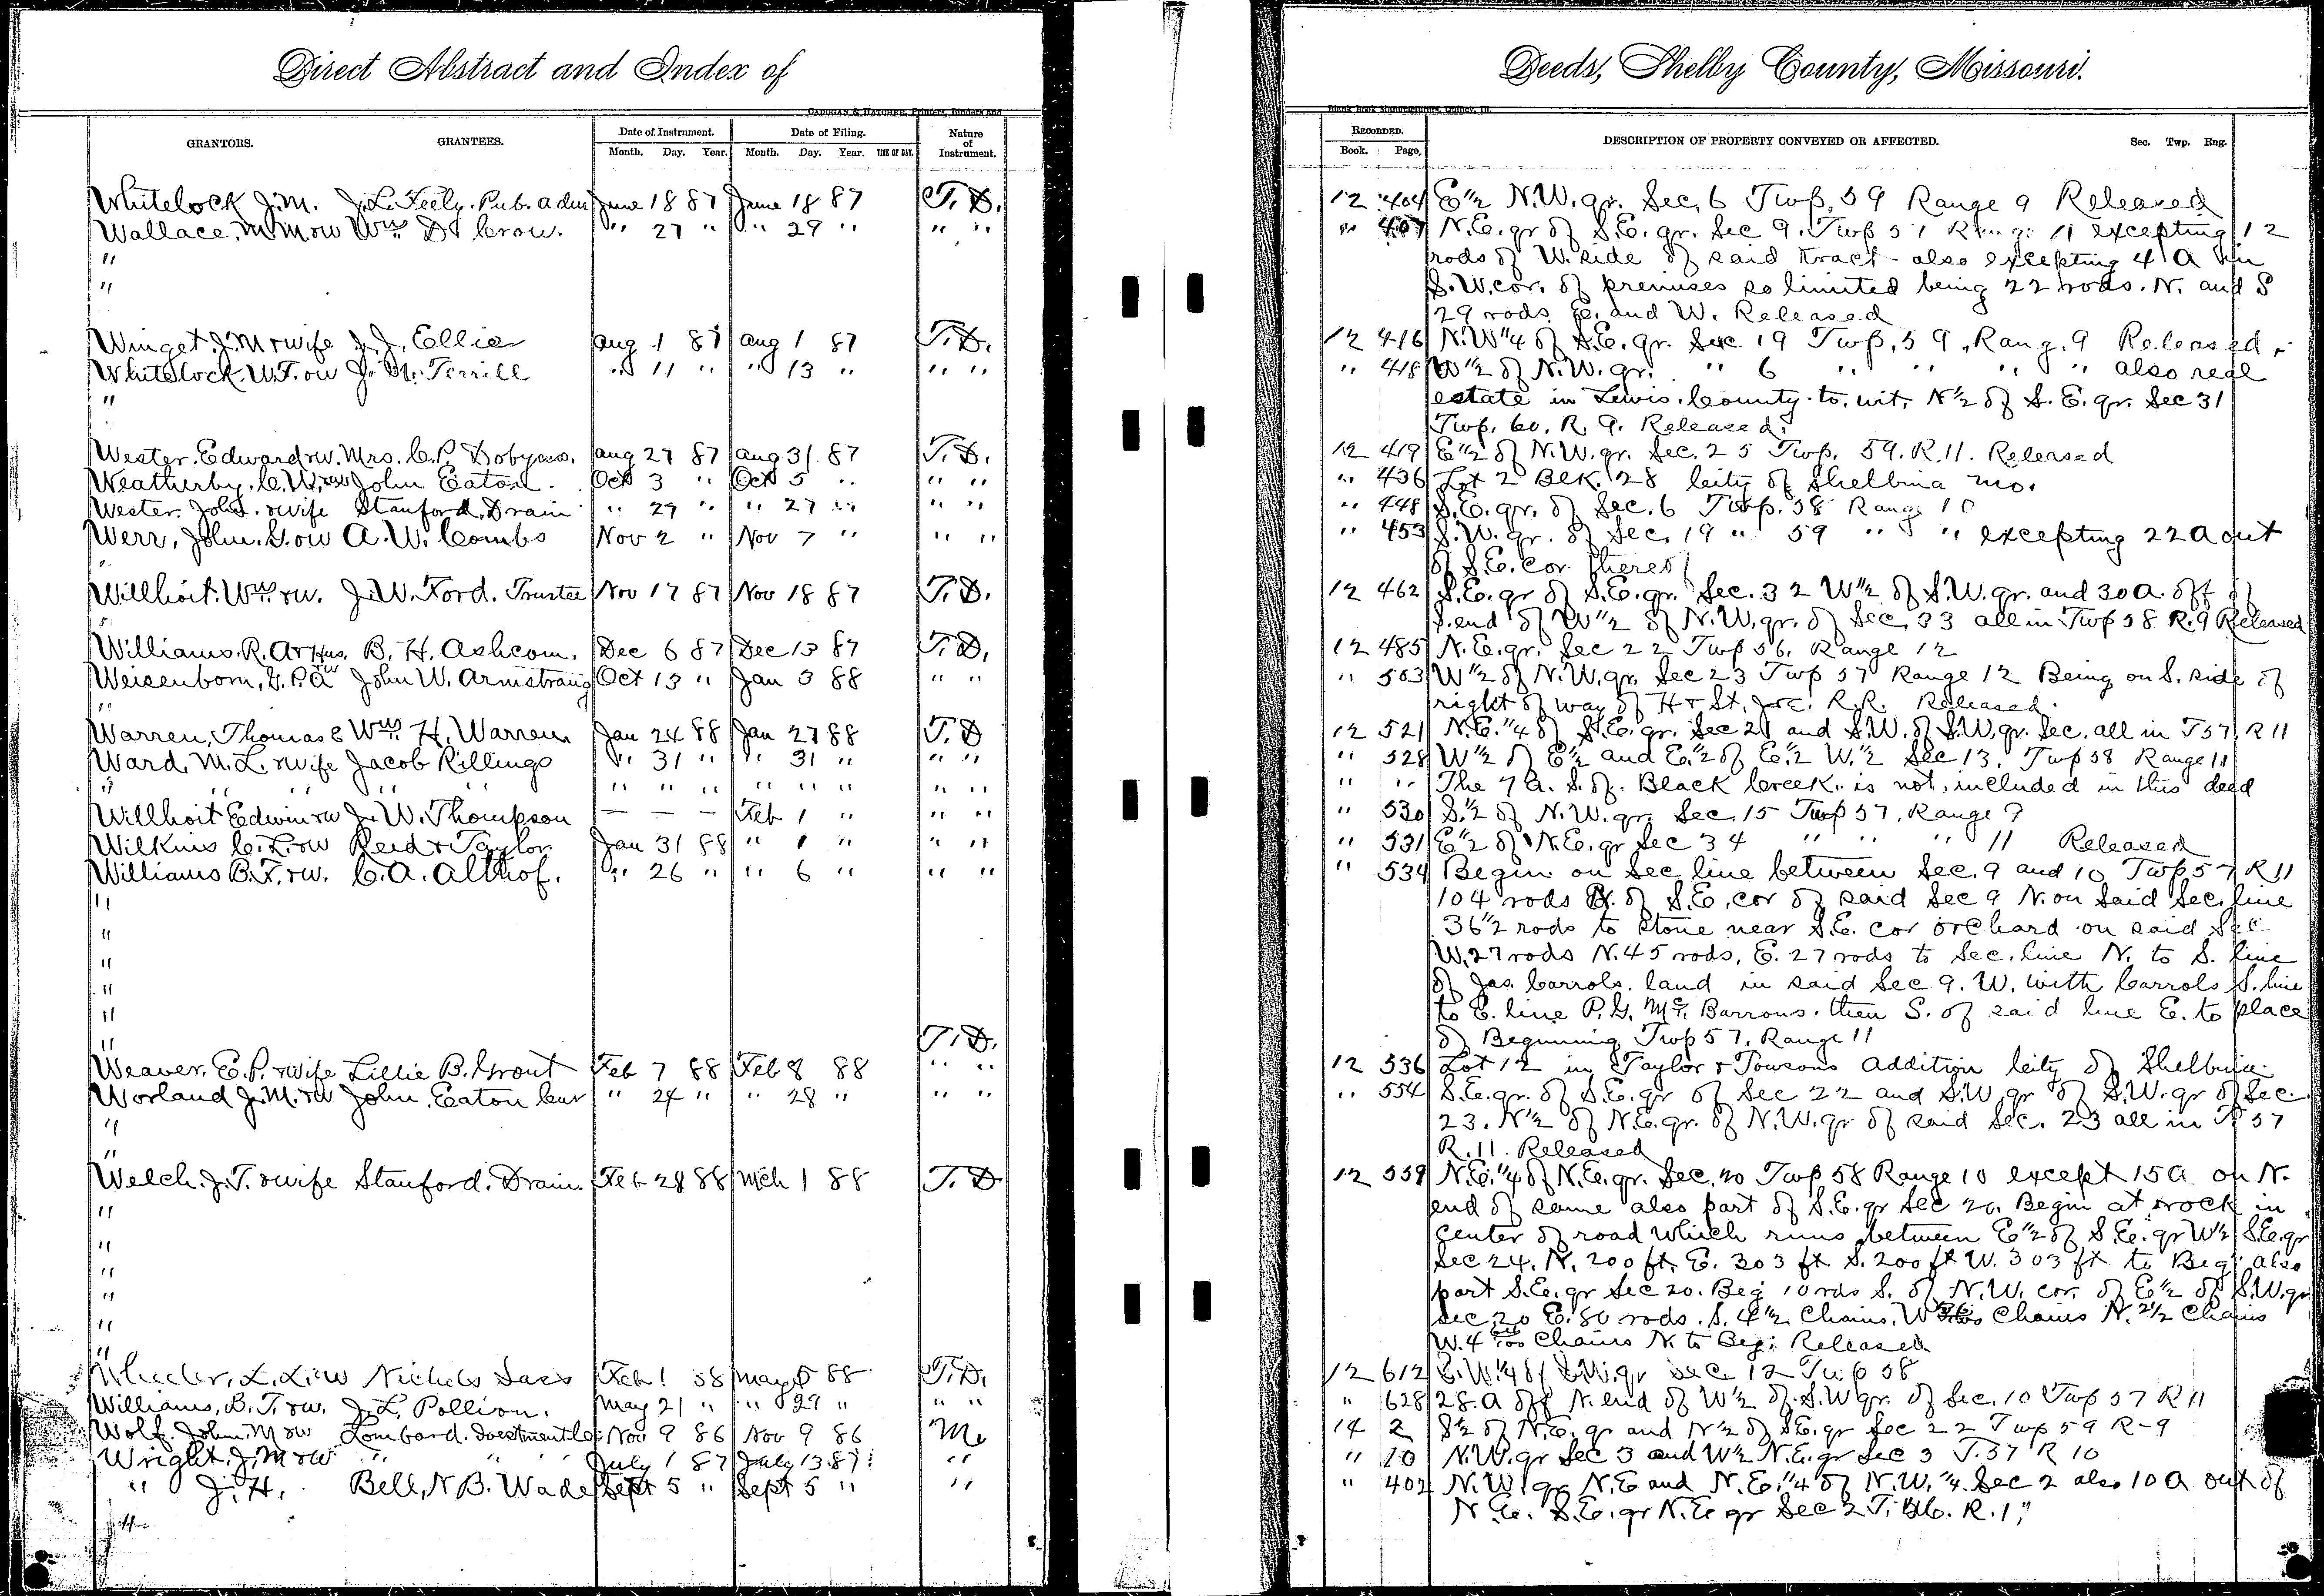 Direct Abstract and Index of
Deeds, Shelby County, Missouri.
CADOGAN & HATCHER, Printers, Binders and
Blank Book Manufacturers, Quincy, Ill.
GRANTORS. GRANTEES. Date of Instrument. Date of Filing. Nature of Instrument. RECORDED. DESCRIPTION OF PROPERTY CONVEYED OR AFFECTED. Sec. Twp. Rng.
Month. Day. Year. Month. Day. Year. TIME OF DAY. Book. Page.
Whitelock J.M. J.L. Feely. Pub. adm June 18 87 June 18 87 T.D. 12 404 E 1/2 N.W. qr. Sec. 6 Twp. 59 Range 9 Released
Wallace. M.M. ow Wm D. Crow. " 27 " " 29 " " " " 407 N.E. qr of S.E. qr. Sec 9. Twp 57 Range 11 excepting 12
" rods of W. side of said tract - also excepting 4 A in
" S.W. cor. of premises so limited being 22 rods. N. and S
29 rods. E. and W. Released
Winget. J.M. & wife J.J. Ellie Aug 1 87 Aug 1 87 T.D. 12 416 N.W 1/4 of S.E. qr. Sec 19 Twp. 59. Rang. 9 Released
Whitelock. W.T. ow J. M. Terrill " 11 " " 13 " " " " 418 W 1/2 of N.W. qr. " 6 " " " " also real
" estate in Lewis. County. to. wit. N 1/2 of S.E. qr. Sec 31
Twp. 60. R. 9. Released.
Wester. Edward & w. Mrs. C.P. Dobyns. Aug 27 87 Aug 31. 87 T.D. 12 419 E 1/2 of N.W. qr. Sec. 25 Twp. 59. R. 11. Released
Weatherby. C.W. John Eaton. Oct 3 " Oct 5 " " " " 436 Lot 2 Blk. 28 City of Shelbina Mo.
Wester. John. & wife Stanford. Drain " 29 " " 27 " " " " 448 S.E. qr. of Sec. 6 Twp. 58 Range 10
Werr, John. G. ow A.W. Combs Nov 2 " Nov 7 " " " " 453 S.W. qr. of Sec. 19 " 59 " " excepting 22 A out
" of S.E. cor. thereof
Willhoit. Wm & w. J.W. Ford. Trustee Nov 17 87 Nov 18 87 T.D. 12 462 S.E. qr of S.E. qr. Sec. 32 W 1/2 of S.W. qr. and 30 A. off of
" S. end of W 1/2 of N.W. qr. of Sec. 33 all in Twp 58 R. 9 Released
Williams. R. B. H. Ashcom. Dec 6 87 Dec 13 87 T.D. 12 485 N.E. qr. Sec 22 Twp 56. Range 12
Weisenborn, G.P. John W. Armstrong Oct 13 " Jan 3 88 " " " 503 W 1/2 of N.W. qr. Sec 23 Twp 57 Range 12 Being on S. side of
" right of way of H & St. Joe. R.R. Released.
Warren, Thomas E Wm. H. Warren Jan 24 88 Jan 27 88 T.D 12 521 N.E. 1/4 of S.E. qr. Sec 21 and S.W. of S.W. qr. Sec. all in T57 R 11
Ward. M.L. & wife Jacob Killings " 31 " " 31 " " " " 528 W 1/2 of E 1/2 and E. 1/2 of E. 1/2 W. 1/2 Sec 13. Twp 58 Range 11
" " " " " " " " " " " " " " The 7 A. S. of. Black Creek. is not. included in this deed
Willhoit Edwin & w J.W. Thompson — — — Feb 1 " " " " 530 S. 1/2 of N.W. qr. Sec. 15 Twp 57. Range 9
Wilkins C.L. ow Reid & Taylor Jan 31 88 " 1 " " " " 531 E 1/2 of N.E. qr Sec 34 " " " 11 Released
Williams B.F. & w. C.A. Althof. " 26 " " 6 " " " " 534 Begin on Sec line between Sec. 9 and 10 Twp 57 R 11
" 104 rods N. of S.E. cor of said Sec 9 N. on said Sec. line
" 36 1/2 rods to stone near S.E. cor orchard on said Sec
" W. 27 rods N. 45 rods, E. 27 rods to Sec. line N. to S. line
" of Jas. Carrols. land in said Sec 9. W. with Carrols S. line
" to E. line P.G. Mc. Barrons. then S. of said line E. to place
" T.D. of Beginning Twp 57. Range 11
Weaver. E.P. & wife Lillie B. Grout Feb 7 88 Feb 8 88 " " 12 536 Lot 12 in Taylor & Towsons Addition City of Shelbina.
Worland J.M. & w John. Eaton Cur " 24 " " 28 " " " " 554 S.E. qr. of S.E. qr of Sec 22 and S.W. qr of S.W. qr of Sec.
" 23. N 1/2 of N.E. qr. of N.W. qr of said Sec. 23 all in T. 57
" R. 11. Released
Welch. J.T. & wife Stanford. Drain. Feb 28 88 Mch 1 88 T.D 12 559 N.E. 1/4 of N.E. qr. Sec. 20 Twp 58 Range 10 except 15 A. on N.
" end of same also part of S.E. qr Sec 20. Begin at rock in
" center of road which runs between E 1/2 of S.E. qr W 1/2 S.E. qr
" Sec 24. N. 200 ft. E. 303 ft. S. 200 ft W. 303 ft to Beg. also
" part S.E. qr Sec 20. Beg 10 rds S. of N.W. cor. of E 1/2 of S.W. qr
" Sec 20 E. 80 rods. S. 4 1/2 Chains. W Chains N. 2 1/2 Chains
" W. 4 Chains N. to Beg. Released
Wheeler, L. Nichols Feb 1 88 May 88 T.D. 12 612 S.W. 1/4 of qr Sec. 12 Twp 58
Williams, B.T. & w. J.L. Pollion. May 21 " " 29 " " " " 628 28. A off N. end of W 1/2 of. S.W qr. of Sec. 10 Twp 57 R 11
Wolf. John. M ow Lombard. Investment Co Nov 9 86 Nov 9 86 M. 14 2 S 1/2 of N.E. qr and N 1/2 of S.E. qr Sec 22 Twp 59 R-9
Wright. J.M. ow " " " July 1 87 July 13. 87 " " 10 N.W. qr Sec 3 and W 1/2 N.E. qr Sec 3 T. 57 R 10
" J.H. Bell, N B. Wade Sept 5 " Sept 5 " " " 402 N.W. qr N.E and N.E. 1/4 of N.W. 1/4. Sec 2 also 10 A out of
N.E. S.E. qr N.E qr Sec 2 T.